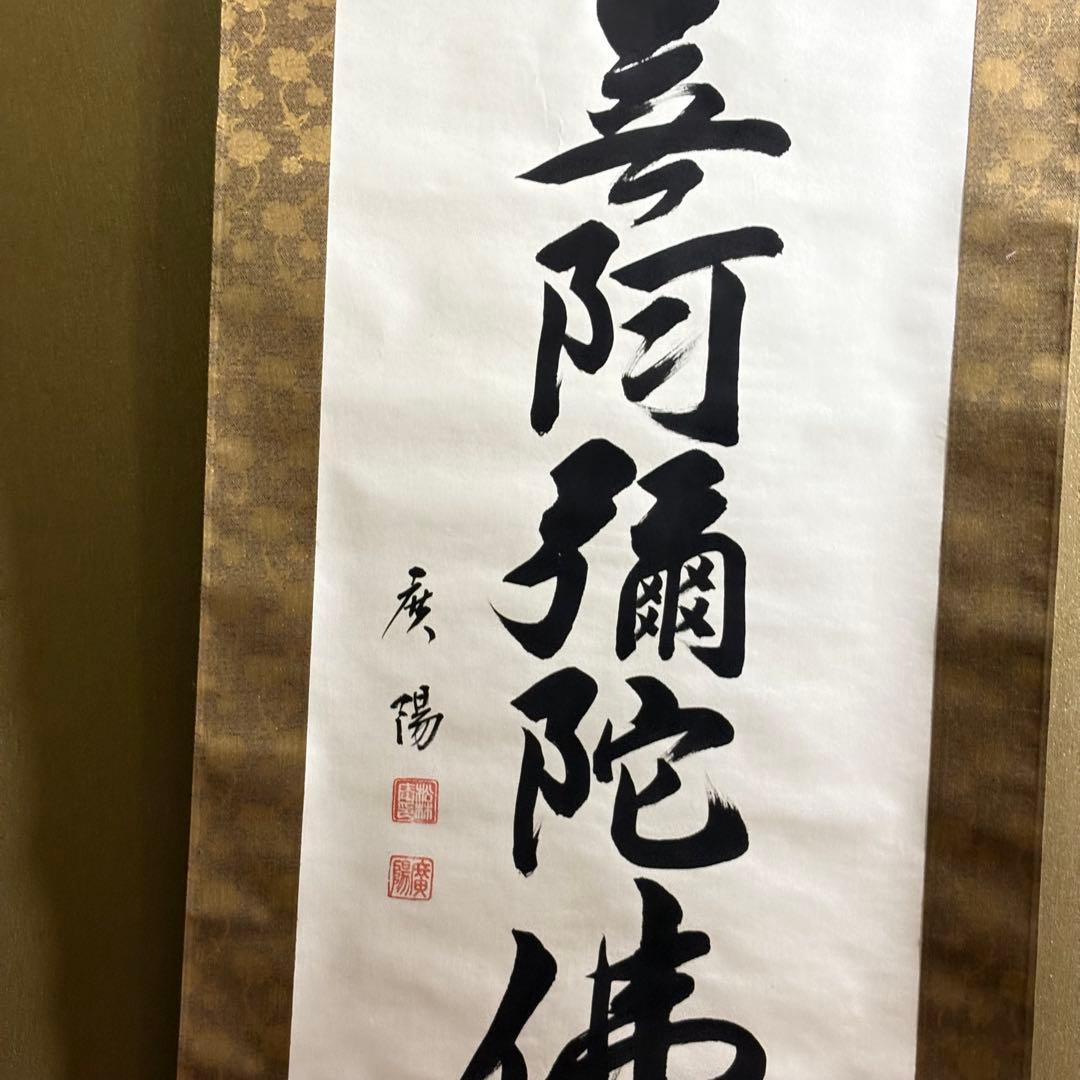 無阿彌陀佛
廣陽
廣陽